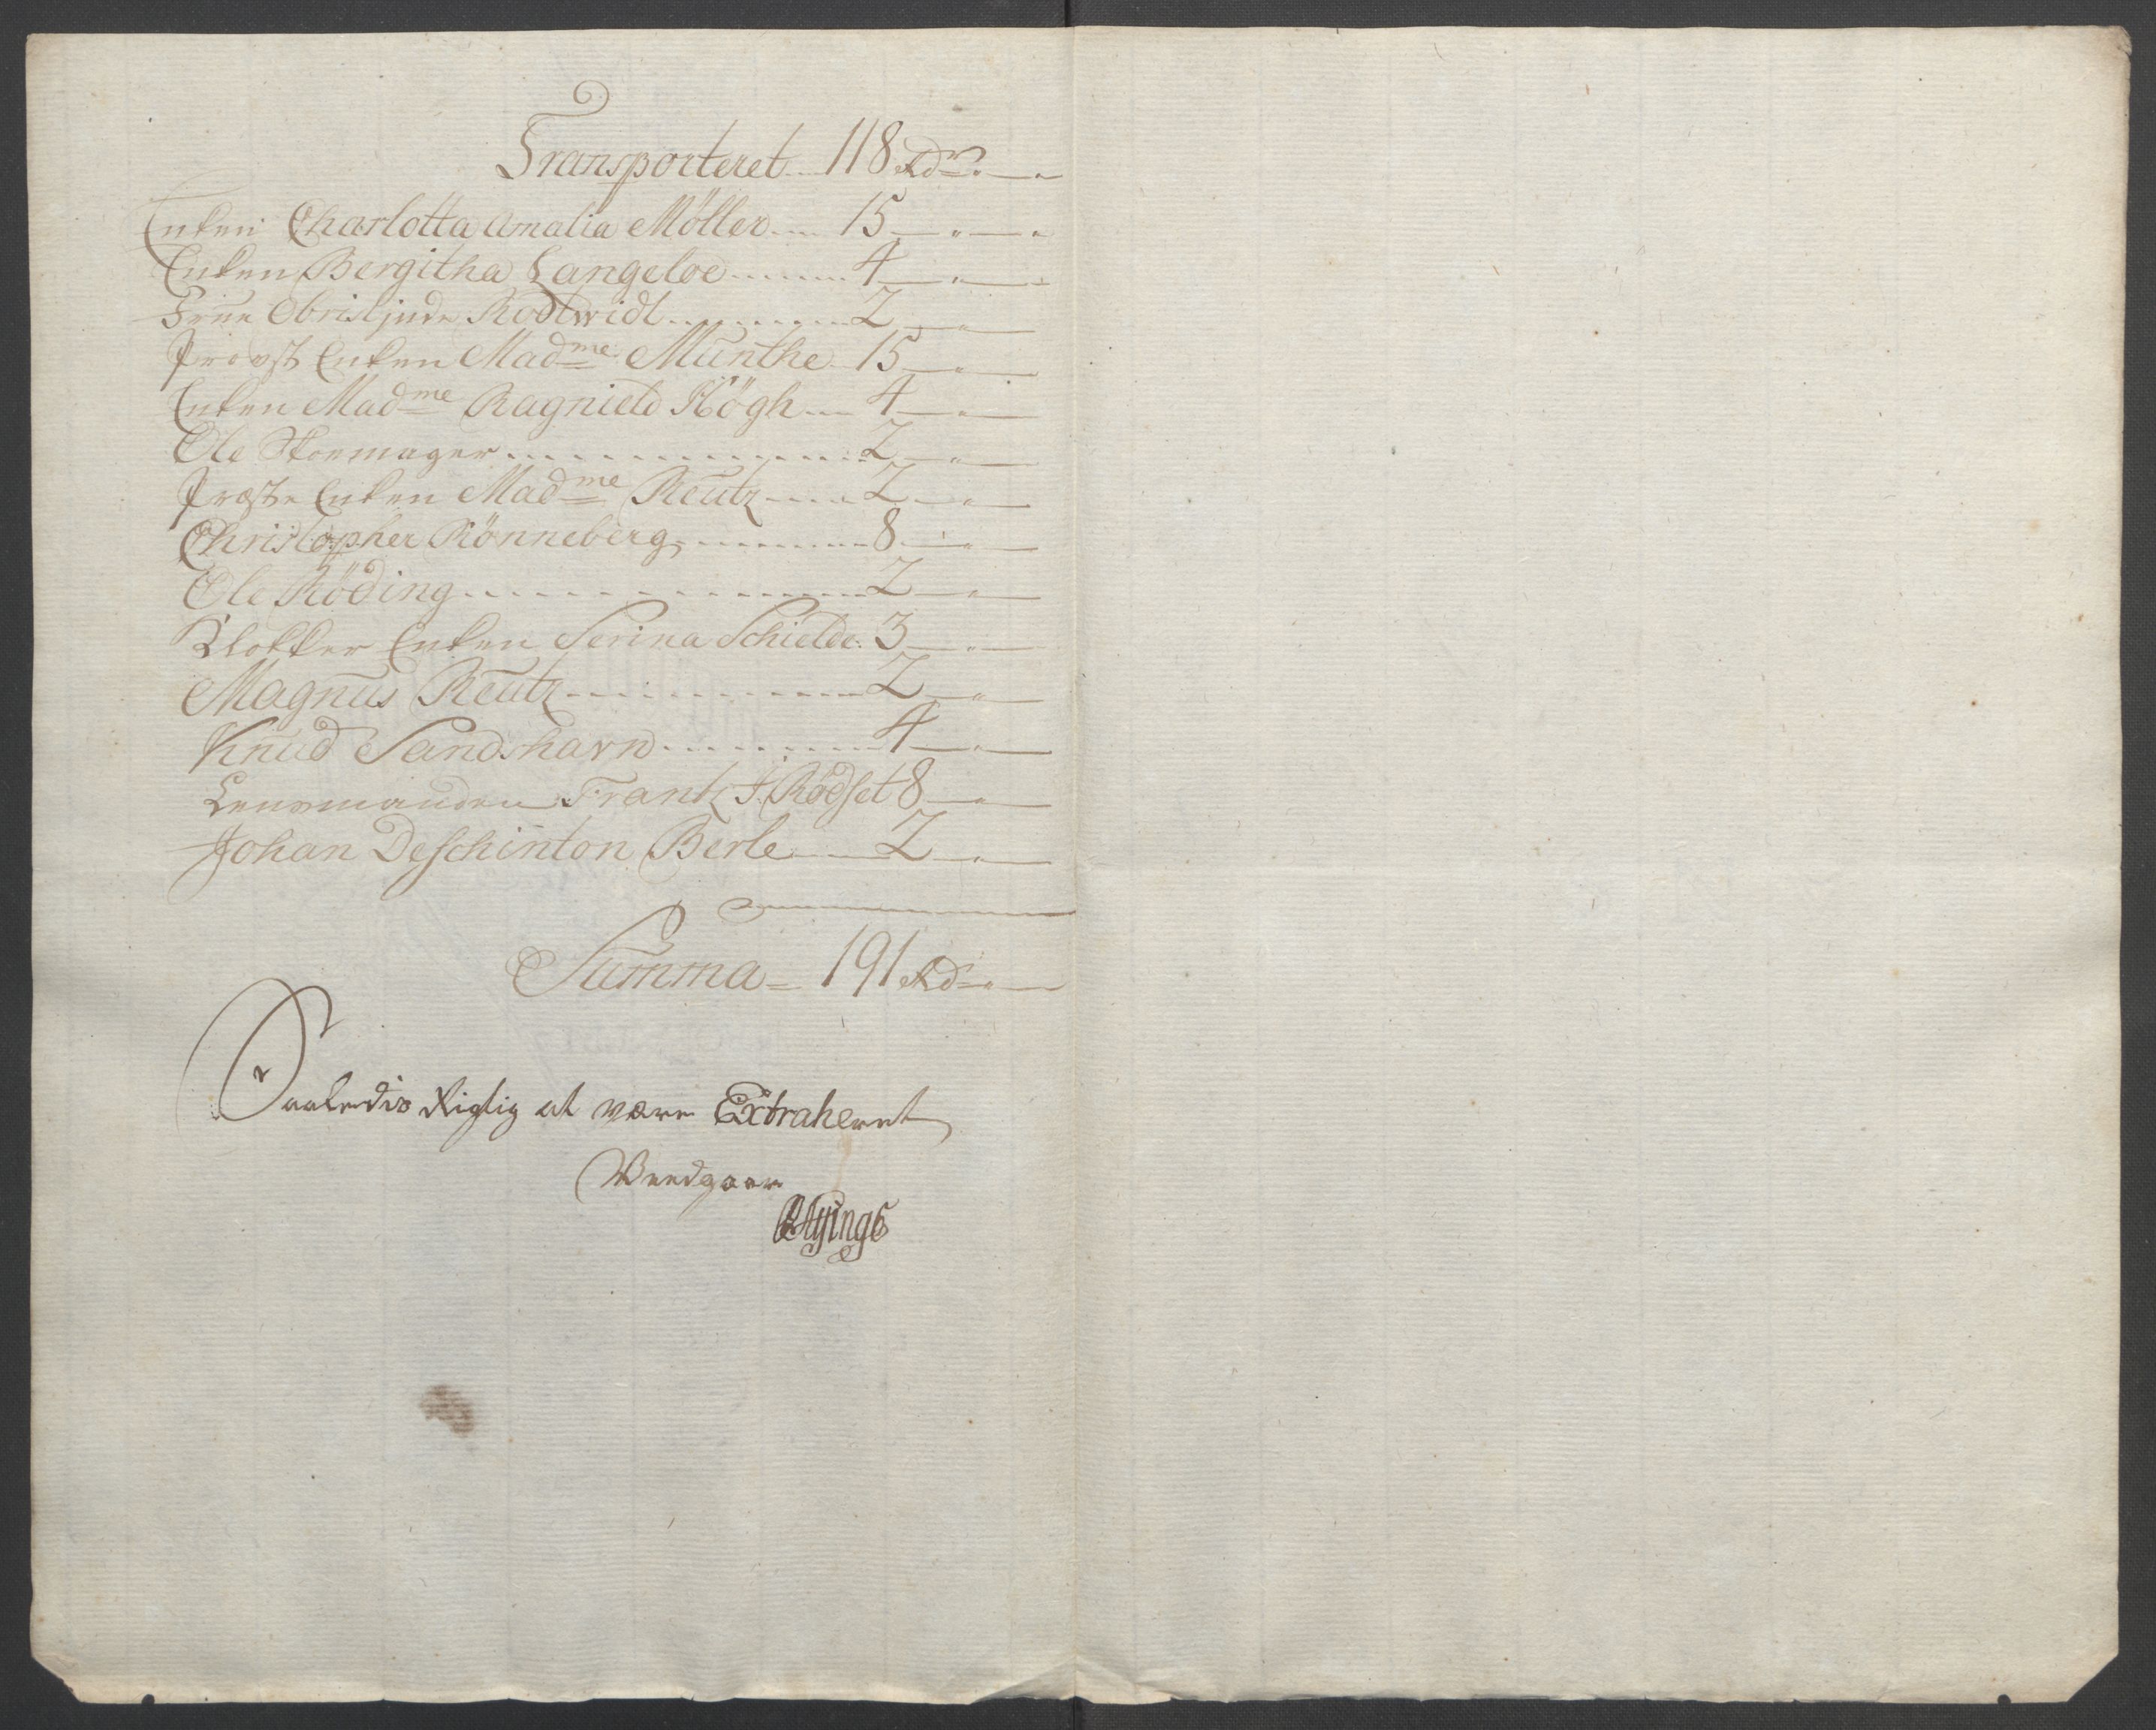 Transporteret .. 118 Rdr „
Enken Charlotta Amalia Möller .... 15 „ „
Enken Bergitha Langeloe ........ 4 „
Frue Obristjnde Rodtwidt ........ 2 „
Provst Enken Madme Munthe 15 „
Enken Madme Ragnield Högh ... 4 „
Ole Skoemager ............ 2 „
Præste Enken Madme Reutz .... 2 „
Christopher Rönneberg ........ 8 „
Ole Röding ............ 2 „
Klokker Enken Serina Schielde: 3 „
Magnus Reutz ............ 2 „
Knud Sandshavn ......... 4 „
Lensmanden Frantz J: Rødset 8 „
Johan Deschinton Berle .... 2 „
Summa = 191 Rdr „
Saaledis Rigtig at være Extraheret